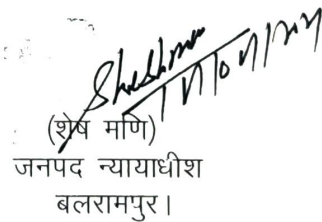 (शेष मणि)
जनपद न्यायाधीश
बलरामपुर।